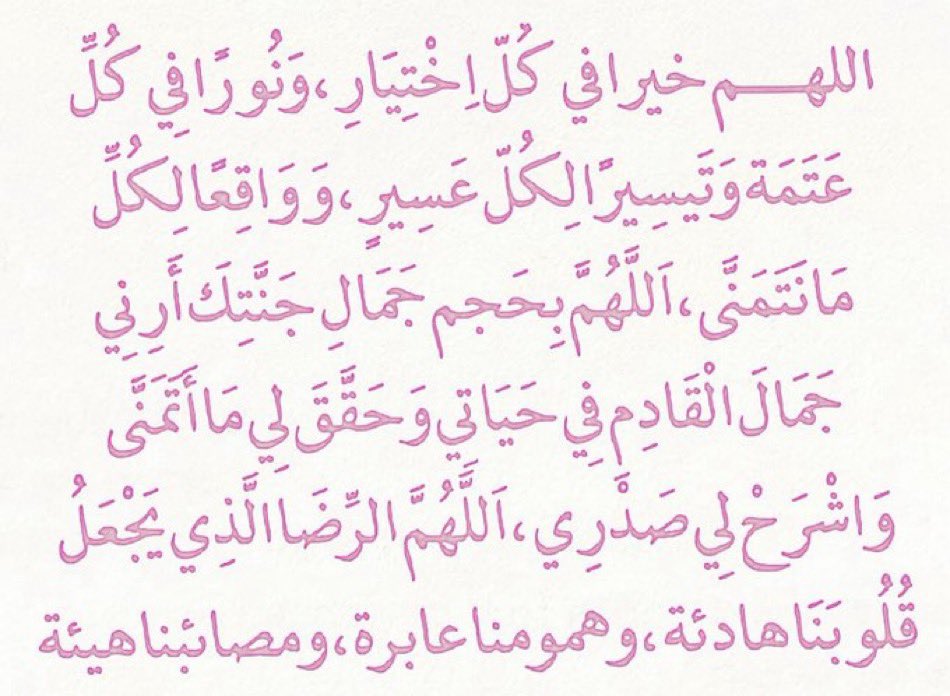 اللهـــــم خيرا في كُلّ اِخْتِيَارِ ،وَنُورًا فِي كُلِّ
عَتَمَة وَتَيسِيرًا لِكُلّ عَسِيرٍ ،وَوَاقِعًا لِكُلِّ
مَا نَتَمَنَّى ،اَللَّهُمَّ بِحَجم جَمَالِ جَنَّتِكَ أَرِنِي
جَمَالَ الْقَادِم فِي حَيَاتِي وَحَقَّقَ لِي مَا أَتَمَنَّى
وَاشْرَحْ لِي صَدْرِي ،اَللَّهُمَّ الرِّضَا الَّذِي يَجْعَلُ
قُلُوبَنَا هادئة ،وهمومنا عابرة ،ومصائبنا هيئة